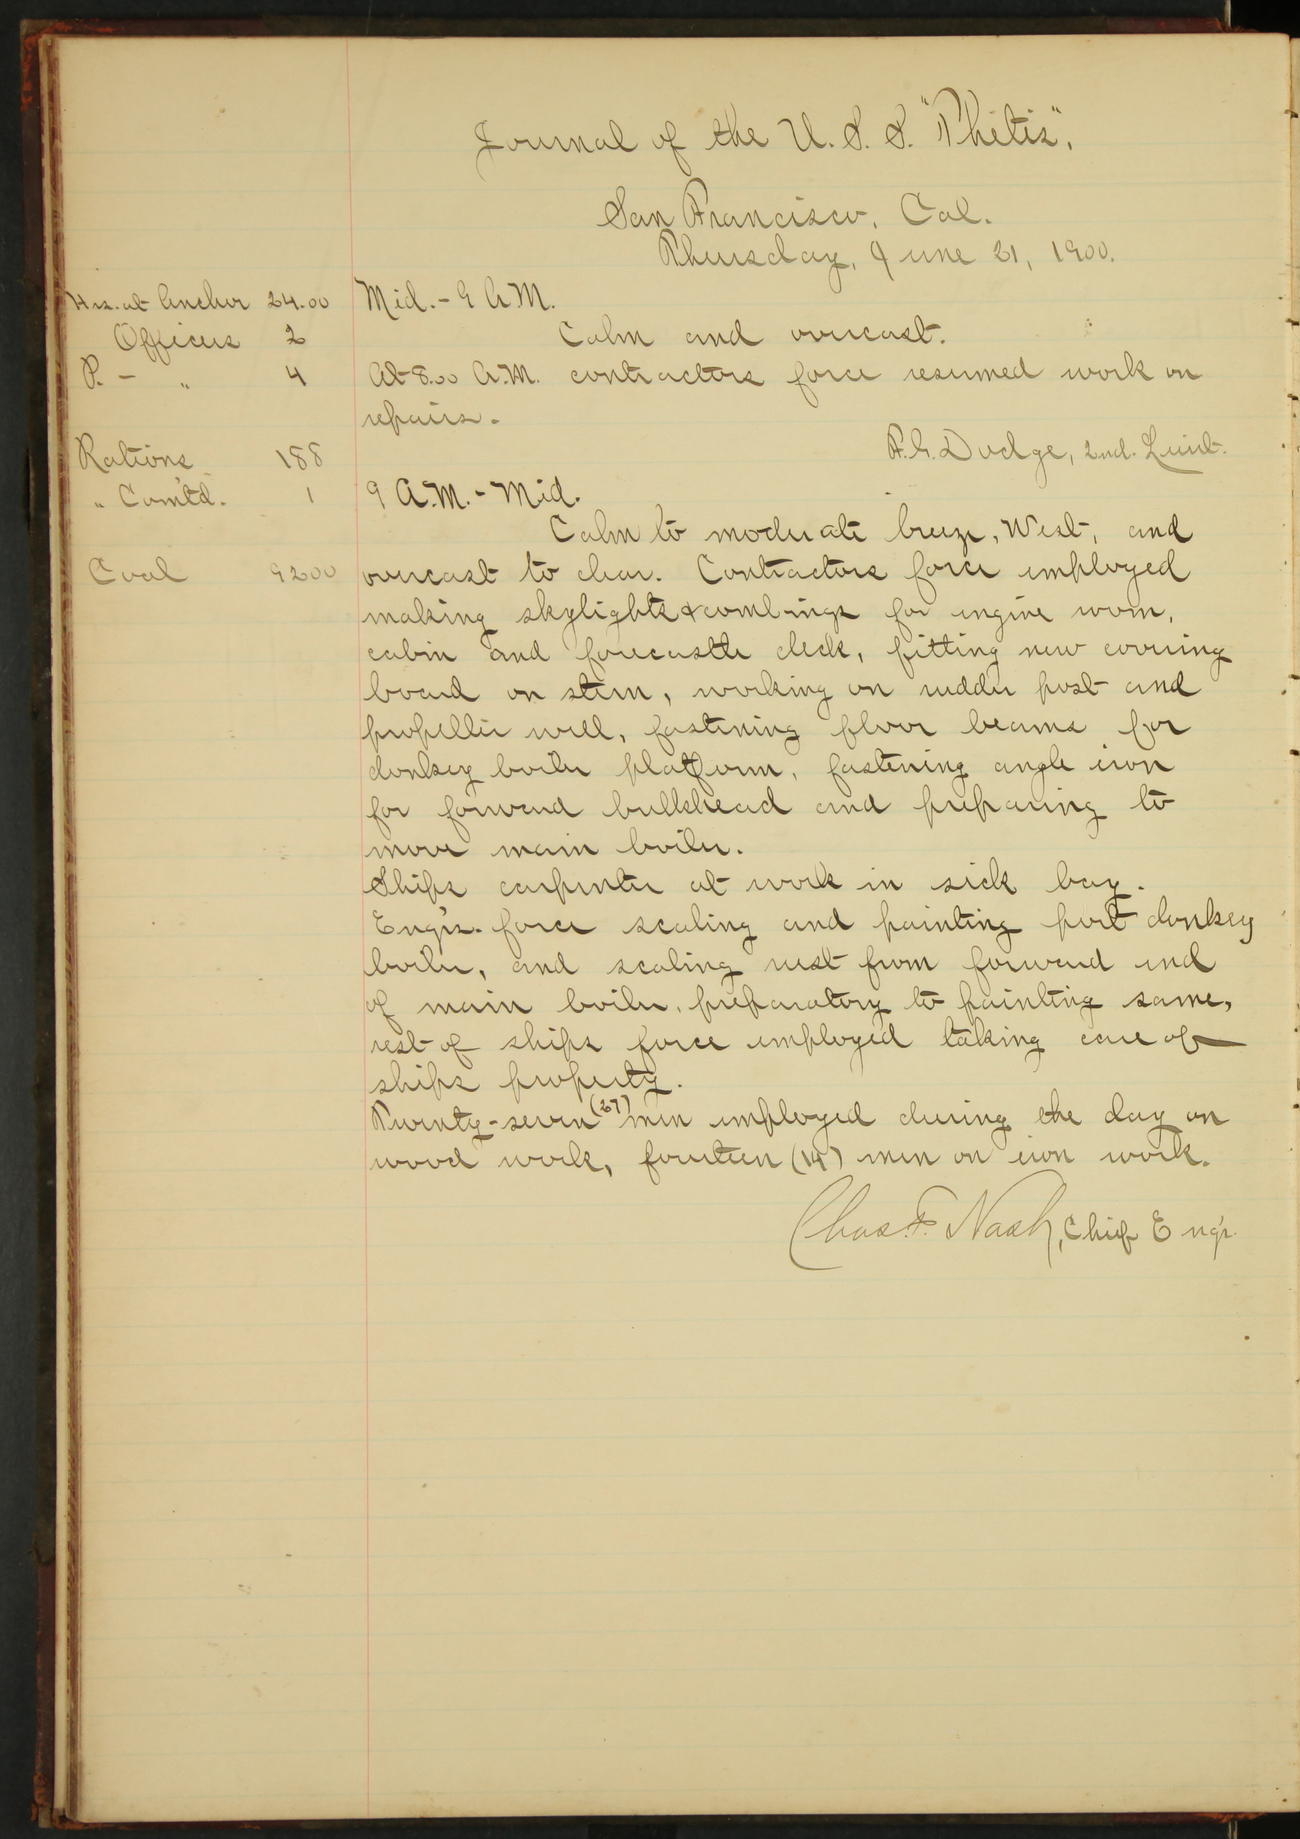 Journal of the U. S. S. "Thetis",
San Francisco, Cal.
Thursday, June 21, 1900.
Hrs. at Anchor 24.00
Officers 2
P. - " 4
Rations 188
" Com'td. 1
Coal 9200
Mid. - 9 A.M.
Calm and overcast.
At 8.00 A.M. contractors force resumed work on
repairs.
F.G. Dodge, 2nd. Lieut.
9 A.M. - Mid.
Calm to moderate breeze, West, and
overcast to clear. Contractors force employed
making skylights & combings for engine room,
cabin and forecastle deck, fitting new covering
board on stern, working on rudder post and
propeller well, fastening floor beams for
donkey boiler platform, fastening angle iron
for forward bulkhead and preparing to
move main boiler.
Ships carpenter at work in sick bay.
Eng'rs. force scaling and painting port donkey
boiler, and scaling rust from forward end
of main boiler, preparatory to painting same,
rest of ships force employed taking care of
ships property.
Twenty-seven (27) men employed during the day on
wood work, fourteen (14) men on iron work.
Chas. F. Nash, Chief Eng'r.